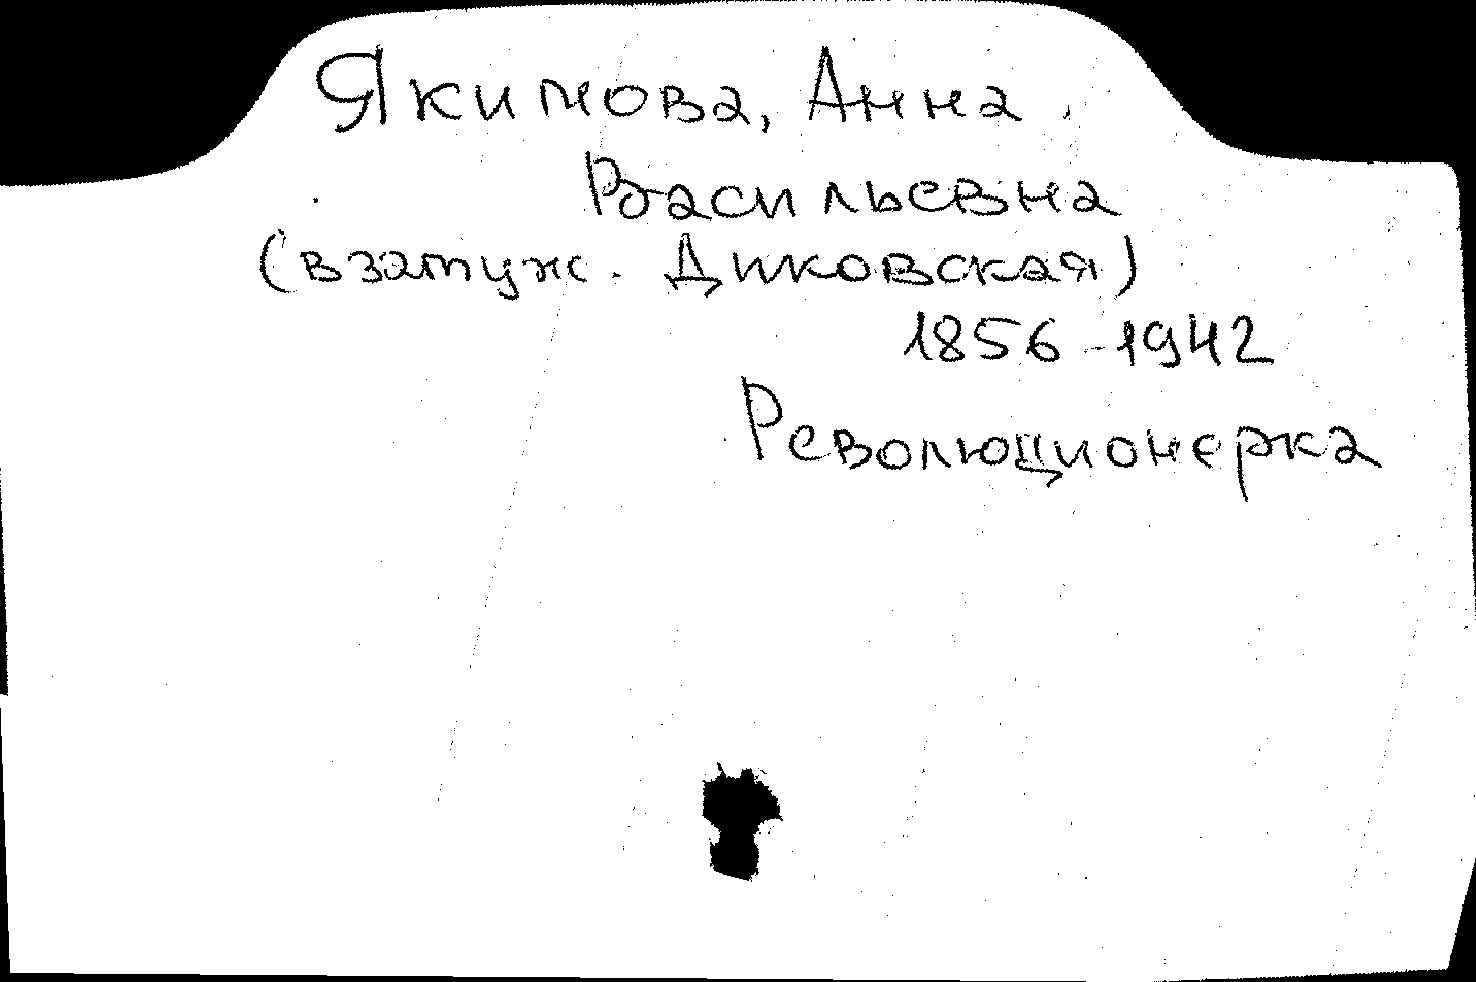 Якимова, Анна
Васильевна
(в замуж. Диковская)
1856-1942
Революционерка